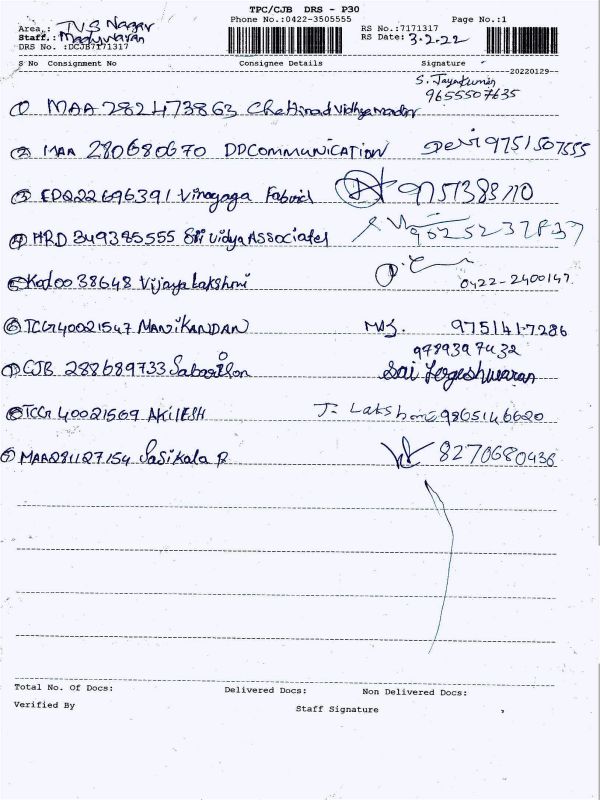 TPC/CJB DRS - P30
Phone No.:0422-3505555 Page No.:1
Area : TVS Nagar
RS No.:7171317
Staff.:
DRS No. :DCJB7171317
RS Date: 3.2.22
S No Consignment No Consignee Details Signature
20220129
S. Jayakumar
9655507635
① MAA 282473863 Chettinad Vidhyamandir
② MAA 280680670 DDCOMMUNICATION Devi 9751507555
③ EDQ22696391 Vinayaga Fabrid 9751383710
④ HRD 349385555 Sri Vidya Associates 9625237837
⑤ Kod0038648 Vijaya Lakshmi 0422-2400147
⑥ TCG40021547 MANIKANDAN 9751417286
9789397432
⑦ CJB 288689733 Sai Yogeshwaran
⑧ TCG40021569 AKILESH J. Lakshmi 9865146620
⑨ MAA281127154 Sasikala R 8270680436
Total No. Of Docs: Delivered Docs: Non Delivered Docs:
Verified By Staff Signature